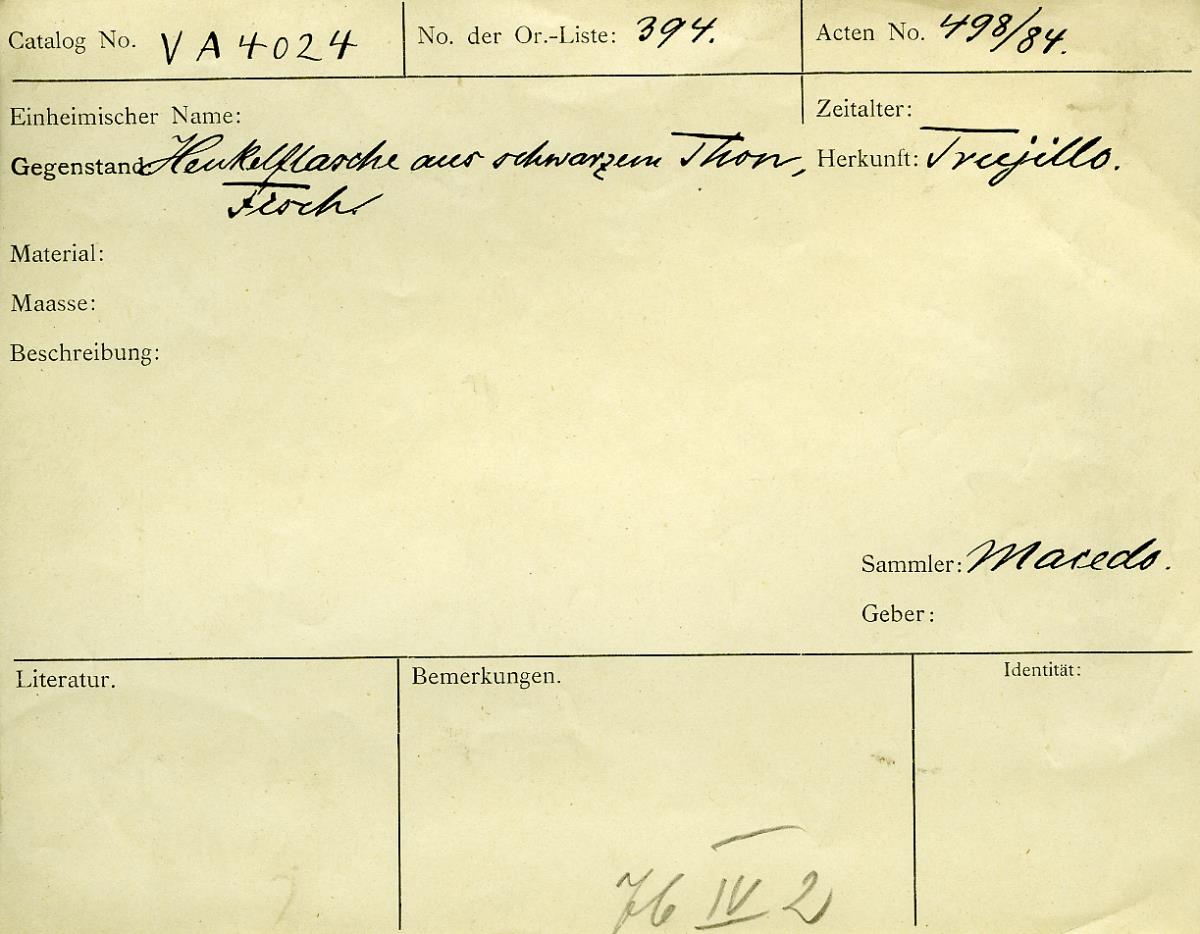 Catalog No. VA 4024
No. der Or.-Liste: 394.
Acten No. 498/84.
Einheimischer Name:
Zeitalter:
Gegenstand: Henkelflasche aus schwarzem Thon,
Fisch.
Herkunft: Trujillo.
Material:
Maasse:
Beschreibung:
Sammler: Macedo.
Geber:
Literatur.
Bemerkungen.
Identität:
IV 2